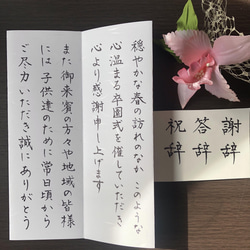 穏やかな春の訪れのなか このような
心温まる卒園式を催していただき
心より感謝申し上げます
また御来賓の方々や地域の皆様
には子供達のために常日頃から
ご尽力いただき誠にありがとう
謝辞
答辞
祝辞